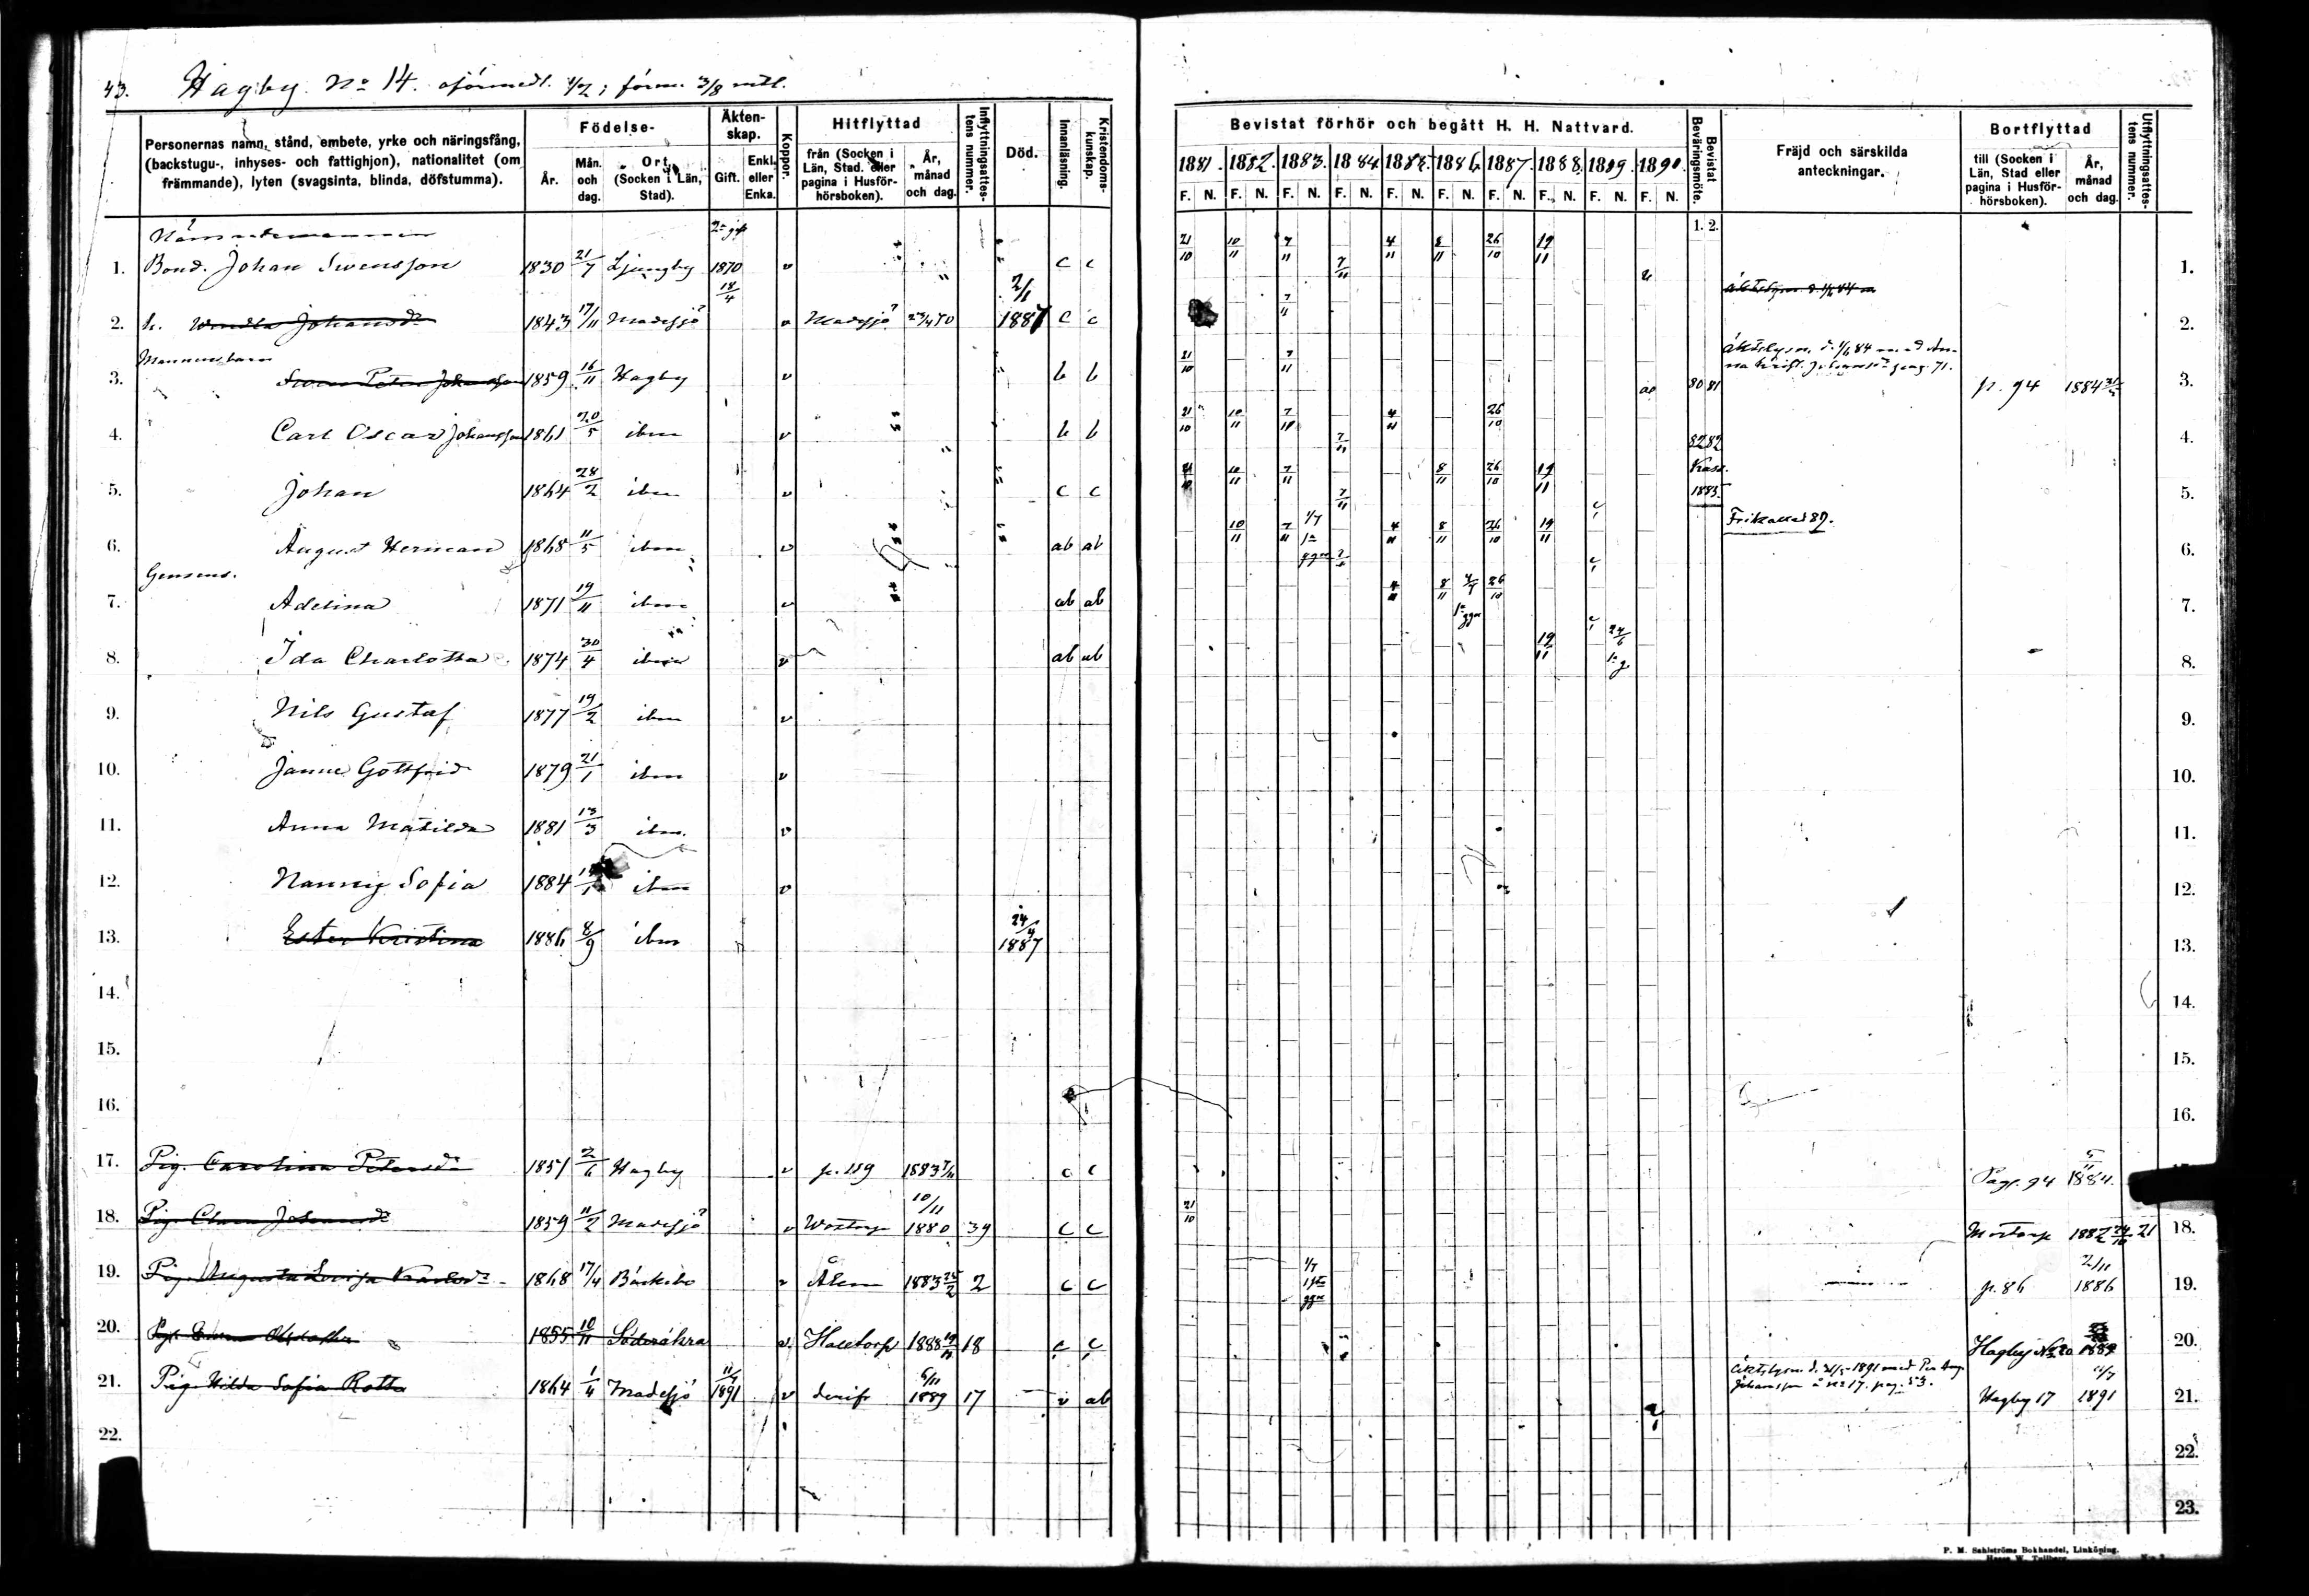 43. Hagby No 14. oförmedl. 1/2; förm. 3/8 mtl.
Personernas namn, stånd, embete, yrke och näringsfång, (backstugu-, inhyses- och fattighjon), nationalitet (om främmande), lyten (svagsinta, blinda, döfstumma).
Födelse-
År.
Mån. och dag.
Ort, (Socken i Län, Stad).
Äkten-skap.
Gift.
Enkl. eller Enka.
Koppor.
Hitflyttad
från (Socken i Län, Stad. eller pagina i Husför-hörsboken).
År, månad och dag.
Inflyttningsattes-tens nummer.
Död.
Innanläsning.
Kristendoms-kunskap.
Bevistat förhör och begått H. H. Nattvard.
1881. 1882. 1883. 1884. 1885. 1886. 1887. 1888. 1889. 1890.
F. N. F. N. F. N. F. N. F. N. F. N. F. N. F. N. F. N. F. N.
Bevistat Beväringsmöte.
1. 2.
Fräjd och särskilda anteckningar.
Bortflyttad
till (Socken i Län, Stad eller pagina i Husför-hörsboken).
År, månad och dag.
Utflyttningsattes-tens nummer.
Nämndemannen 2a gift
1. Bond. Johan Swensson 1830 21/7 Ljungby 1870 18/4 v c c 21/10 10/11 7/11 7/11 4/11 8/11 26/10 19/11 1.
2. h. Johansdr 1843 17/11 Madesjö v Madesjö 23/4 70 2/1 1887 c c 7/11 2.
Mannens barn
3. Swen Peter Johansson 1859 16/11 Hagby v b b 21/10 7/11 80 81 p. 94 1884 3.
4. Carl Oscar Johansson 1861 20/5 ibm v b b 21/10 10/11 7/11 7/11 4/11 26/10 82 82 4.
5. Johan 1864 28/2 ibm v c c 21/10 10/11 7/11 7/11 8/11 26/10 19/11 Kass. 1883. 5.
6. August Herman 1868 11/5 ibm v ab ab 10/11 7/11 1/7 1a ggn 4/11 8/11 26/10 19/11 Frikallad 89. 6.
Gemens.
7. Adelina 1871 19/11 ibm v ab ab 4/11 8/11 1a ggn 26/10 7.
8. Ida Charlotta 1874 30/4 ibm v ab ab 19/11 24/6 1a g 8.
9. Nils Gustaf 1877 19/2 ibm v 9.
10. Janne Gottfrid 1879 21/1 ibm v 10.
11. Anna Matilda 1881 13/3 ibm. v 11.
12. Nanny Sofia 1884 ibm v 12.
13. Ester Kristina 1886 8/9 ibm 24/9 1887 13.
14. 14.
15. 15.
16. 16.
17. Pig. Carolina Petersdr 1851 2/6 Hagby v p. 119 1883 c c Pag. 94 1884.
18. Pig. Clara Johansdr 1859 11/2 Madesjö v Woxtorp 10/11 1880 39 c c 21/10 Mortorp 1882 24/10 21 18.
19. Pig. Augusta Lovisa Karlsdr 1868 17/4 Bäckebo v Ålem 1883 25/2 2 c c 1/7 1sta ggn p. 86 2/11 1886 19.
20. Pig. 1855 10/11 Söderåkra v. Halltorp 1888 18 c c Hagby No 20 1889 20.
21. Pig. Hilda Sofia Rotta 1864 1/4 Madesjö 1891 v derifr 6/11 1889 17 v ab Hagby 17 1891 21.
22. 22.
23.
P. M. Sahlströms Bokhandel, Linköping.